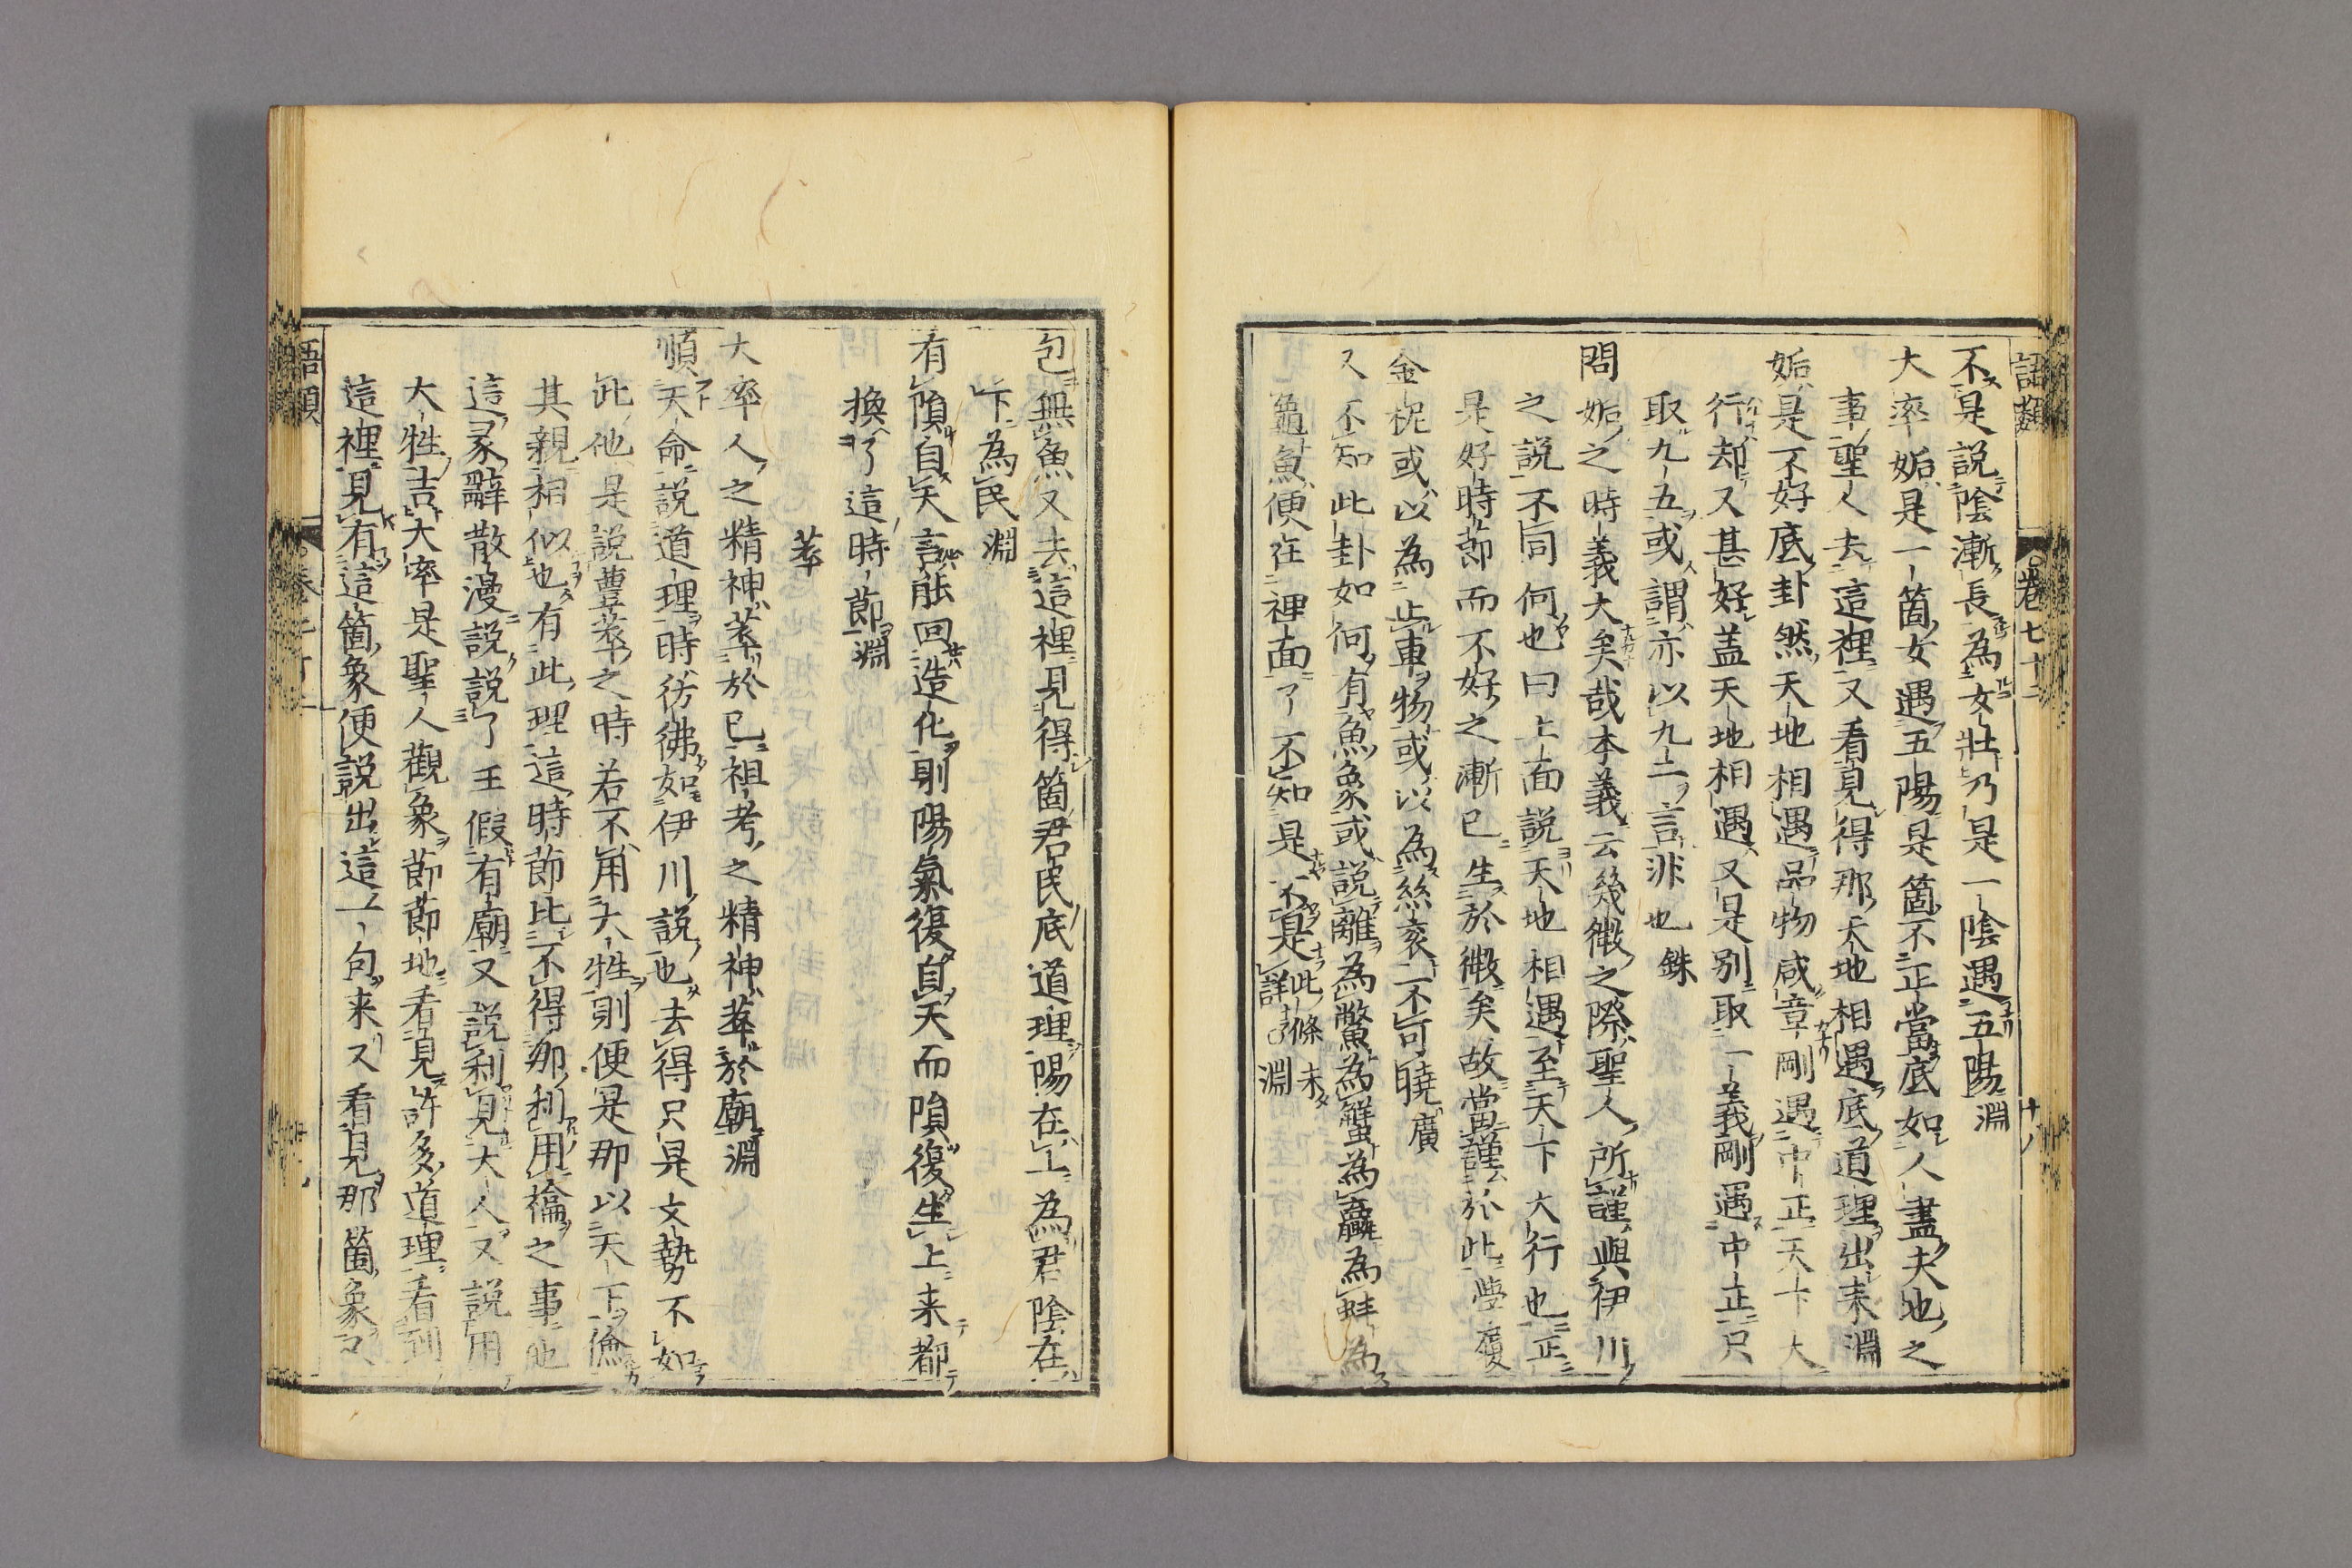 語類 卷七十二 十八
不是說陰漸長為女壯乃是一陰遇五陽淵
大率姤是一箇女遇五陽是箇不正當底如人盡夫地之
事聖人去這裡又看見得那天地相遇底道理出來淵
姤是不好底卦然天地相遇品物咸章剛遇中正天下大
行却又甚好蓋天地相遇又是别取一義剛遇中正只
取九五或謂亦以九二言非也銖
問姤之時義大矣哉本義云幾微之際聖人所謹與伊川
之說不同何也曰上面說天地相遇至天下大行也正
是好時節而不好之漸已生於微矣故當謹於此學履
金柅或以為止車物或以為絲衮不可曉廣
又不知此卦如何有魚象或說離為鱉為蟹為蠃為蚌為
龜魚便在裡面了不知是不是此條未詳淵
包無魚又去這裡見得箇君民底道理陽在上為君陰在
下為民淵
有隕自天言能回造化則陽氣復自天而隕復生上来都
換了這時節淵
萃
大率人之精神萃於已祖考之精神萃於廟淵
順天命說道理時彷彿如伊川說也去得只是文勢不如
此他是說豐萃之時若不用大牲則便是那以天下儉
其親相似也有此理這時節比不得那利用禴之事他
這彖辭散漫說說了王假有廟又說利見大人又說用
大牲吉大率是聖人觀象節節地看見許多道理看到
這裡見有這箇象便說出這一句来又看見那箇象又
語類